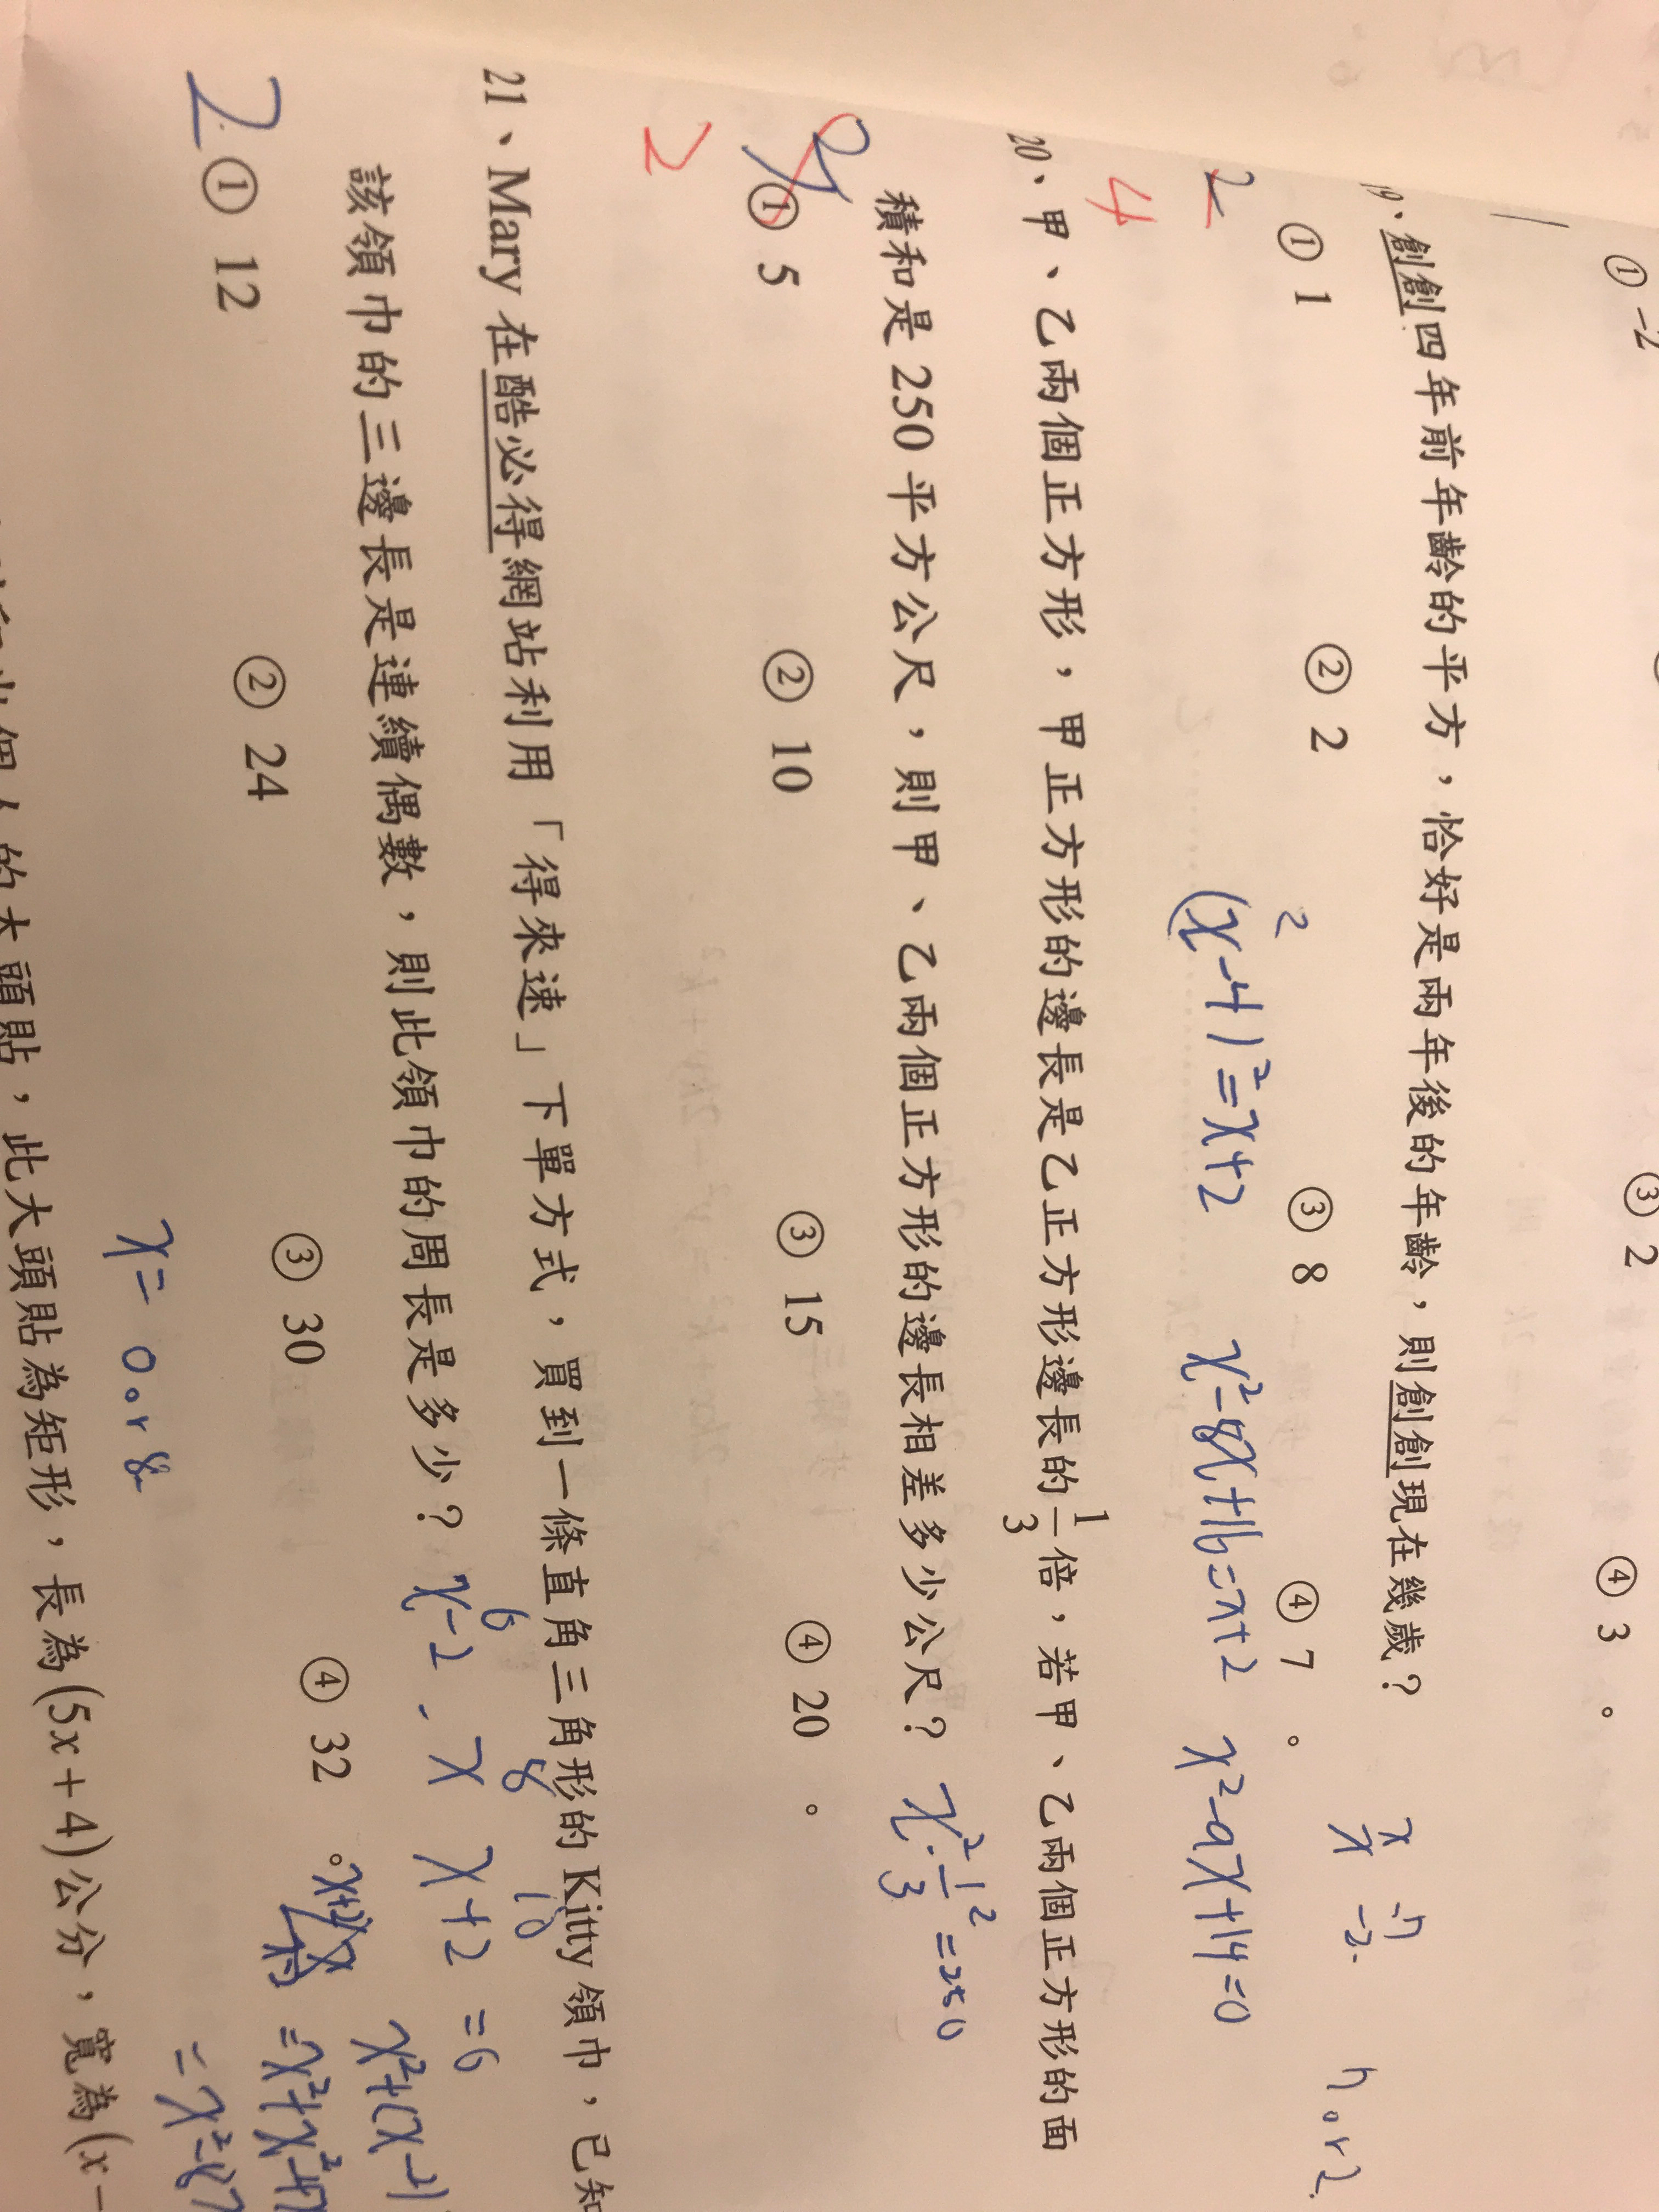 ① -2 ③ 2 ④ 3 。
19、創創四年前年齡的平方,恰好是兩年後的年齡,則創創現在幾歲?
2 ① 1 ② 2 ③ 8 ④ 7 。
4
(x-4)²=x+2 x²-8x+16=x+2 x²-9x+14=0
x -7
x -2
7 or 2
20、甲、乙兩個正方形,甲正方形的邊長是乙正方形邊長的 1/3 倍,若甲、乙兩個正方形的面
積和是 250 平方公尺,則甲、乙兩個正方形的邊長相差多少公尺? x²·1/3²=250
① 5 ② 10 ③ 15 ④ 20 。
2
21、Mary 在酷必得網站利用「得來速」下單方式,買到一條直角三角形的 Kitty 領巾,已知
6 8 10
該領巾的三邊長是連續偶數,則此領巾的周長是多少? x-2、x x+2 =6
2 ① 12 ② 24 ③ 30 ④ 32 。
x²+(x-2)
=x²+x²-4x
=x²-8x
x= 0 or 8
個人的大頭貼,此大頭貼為矩形,長為(5x+4)公分,寬為(x-